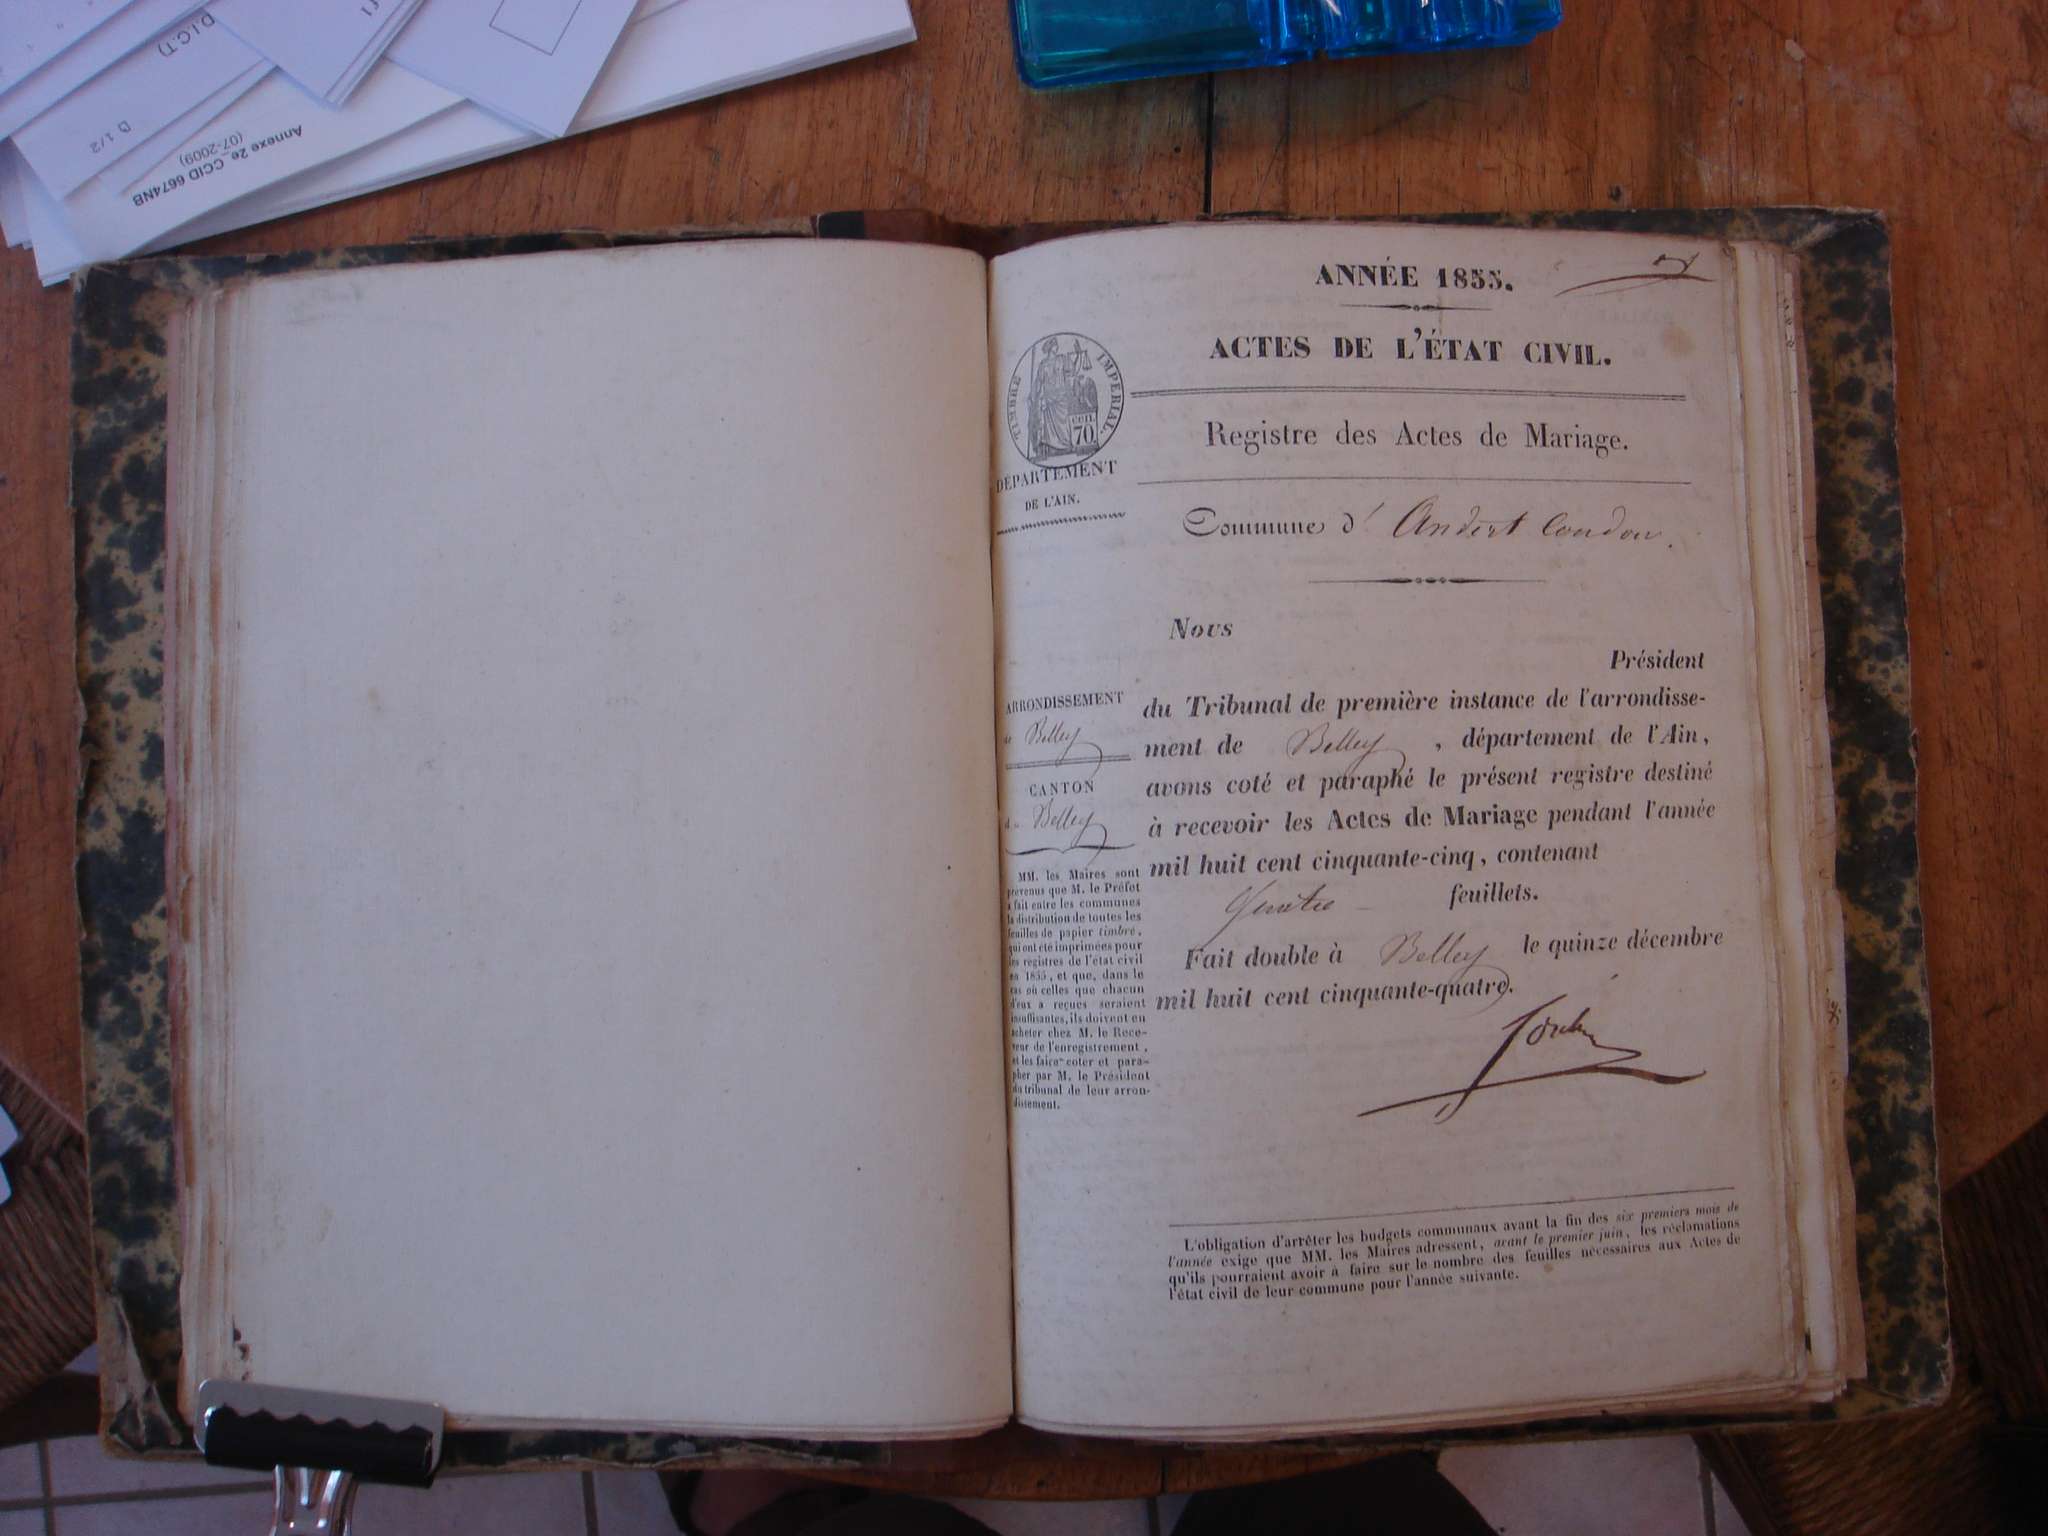 D.I.C.T)
D 1/2
Annexe 2e_CCID 6674NB
(07-2009)
ANNÉE 1855.
ACTES DE L'ÉTAT CIVIL.
Registre des Actes de Mariage.
TIMBRE IMPERIAL.
cen.
70
DÉPARTEMENT
DE L'AIN.
Commune d' Andert Condon.
Nous
Président
du Tribunal de première instance de l'arrondisse-
ment de Belley, département de l'Ain,
avons coté et paraphé le présent registre destiné
à recevoir les Actes de Mariage pendant l'année
mil huit cent cinquante-cinq, contenant
Quatre feuillets.
Fait double à Belley le quinze décembre
mil huit cent cinquante-quatre.
ARRONDISSEMENT
de Belley
CANTON
de Belley
MM. les Maires sont
prévenus que M. le Préfet
a fait entre les communes
la distribution de toutes les
feuilles de papier timbré,
qui ont été imprimées pour
les registres de l'état civil
en 1855, et que, dans le
cas où celles que chacun
d'eux a reçues seraient
insuffisantes, ils doivent en
acheter chez M. le Rece-
veur de l'enregistrement,
et les faire coter et para-
pher par M. le Président
du tribunal de leur arron-
dissement.
L'obligation d'arrêter les budgets communaux avant la fin des six premiers mois de
l'année exige que MM. les Maires adressent, avant le premier juin, les réclamations
qu'ils pourraient avoir à faire sur le nombre des feuilles nécessaires aux Actes de
l'état civil de leur commune pour l'année suivante.